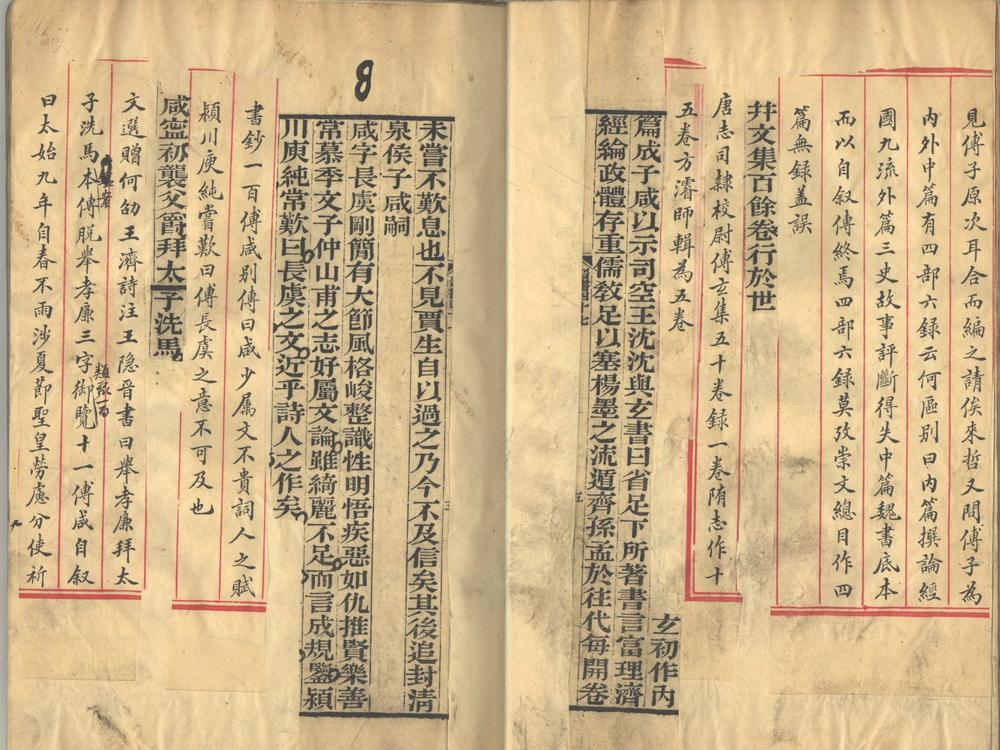 見傅子原次耳合而編之請俟來哲又問傅子為
内外中篇有四部六録云何區别曰内篇撰論經
國九流外篇三史故事評斷得失中篇魏書底本
而以自叙傳終焉四部六録莫攷崇文總目作四
篇無録蓋誤
幷文集百餘卷行於世
唐志司隷校尉傅玄集五十卷録一卷隋志作十
五卷方濬師輯為五卷
玄初作内
篇成子咸以示司空王沈沈與玄書曰省足下所著書言富理濟
經綸政體存重儒敎足以塞楊墨之流遁齊孫孟於往代每開卷
未嘗不歎息也不見賈生自以過之乃今不及信矣其後追封淸
泉侯子咸嗣
咸字長虞剛簡有大節風格峻整識性明悟疾惡如仇推賢樂善
常慕季文子仲山甫之志好屬文論雖綺麗不足而言成規鑒潁
川庾純常歎曰長虞之文近乎詩人之作矣
8
書鈔一百傅咸别傳曰咸少属文不貴詞人之賦
潁川庾純嘗歎曰傅長虞之意不可及也
咸寍初襲父爵拜太子洗馬
文選贈何劭王濟詩注王隐晉書曰舉孝廉拜太
子洗馬本傳脱舉孝廉三字御覽十一傅咸自叙
曰太始九年自春不雨涉夏節聖皇勞慮分使祈